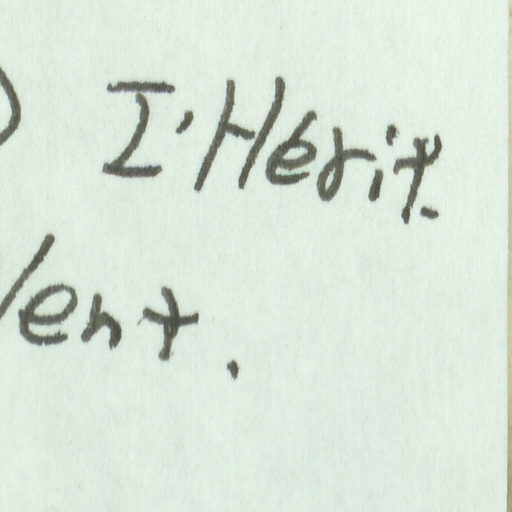 ) I'Hérit.
Vent.